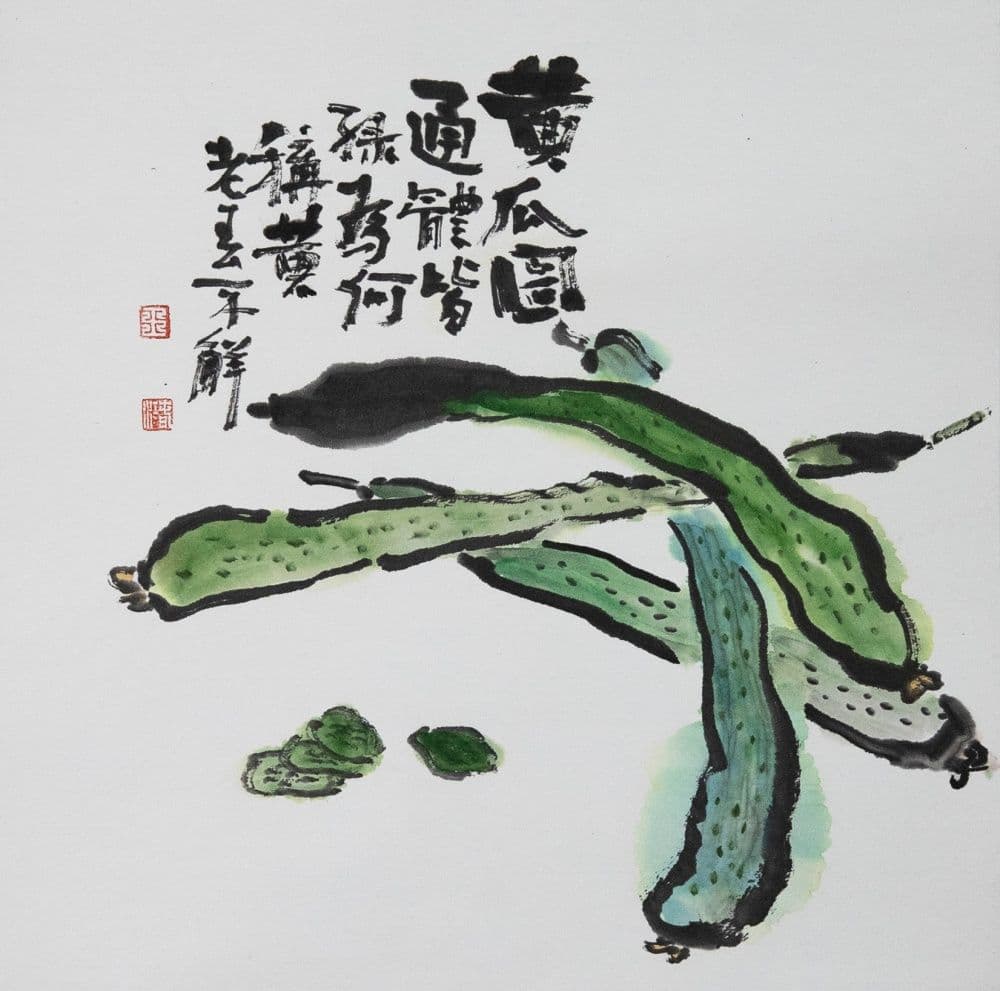 黄瓜圖
通體皆
綠為何
稱黄
老 不解